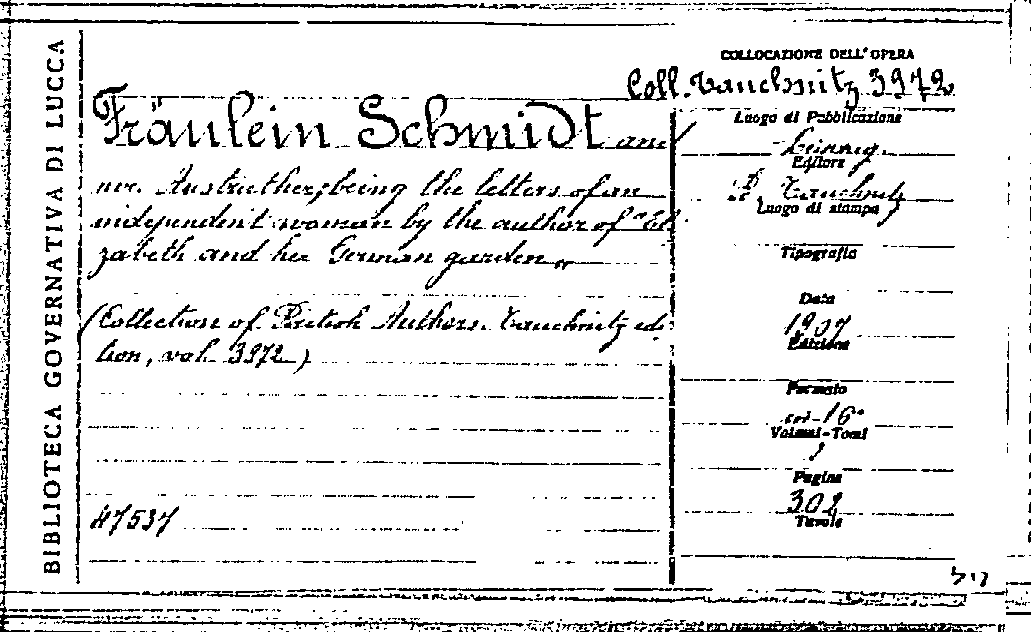 BIBLIOTECA GOVERNATIVA DI LUCCA
Fräulein Schmidt and
mr. Anstruther, being the letters of an
independent woman by the author of "Eli
zabeth and her German garden„
(Collection of British Authors. Tauchnitz edi-
tion, vol. 3972)
47537
COLLOCAZIONE DELL'OPERA
Coll. Tauchnitz 3972
Luogo di Pubblicazione
Leipzig.
Editore
B. Tauchnitz
Luogo di stampa
Tipografia
Data
1907
Edizione
Formato
in-16°
Volumi-Tomi
Pagine
302
Tavole